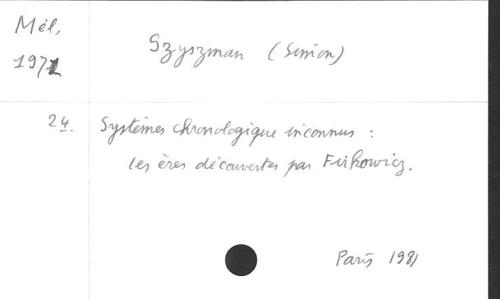 Mél,
1971
Szyszman (Simon)
24.
Systèmes chronologique inconnus :
les ères découvertes par Firkowicz.
Paris 1981